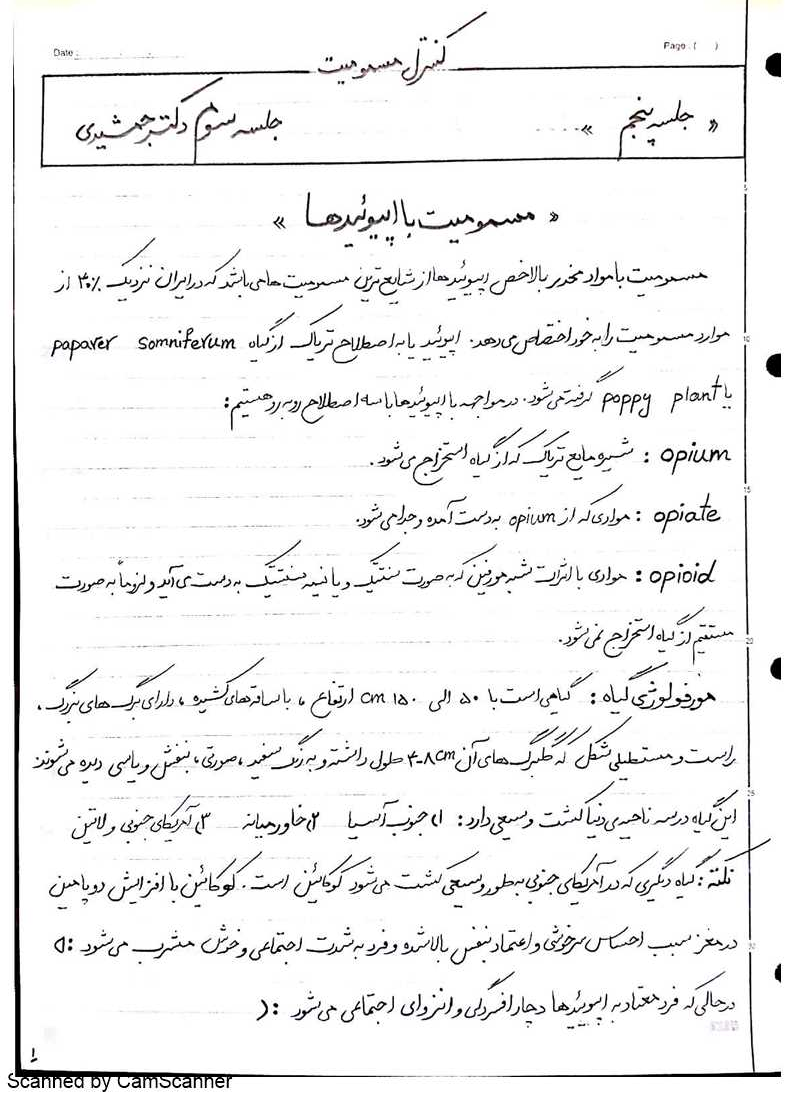 Date :
Page : ( )
کنترل مسمومیت
« جلسه پنجم »
جلسه سوم دکتر جمشیدی
« مسمومیت با اپیوئیدها »
مسمومیت با مواد مخدر بالاخص اپیوئیدها از شایع ترین مسمومیت ها می باشد که در ایران نزدیک ۴۰٪ از
موارد مسمومیت را به خود اختصاص می دهد. اپیوئید یا به اصطلاح تریاک از گیاه papaver somniferum
یا poppy plant گرفته می شود. در مواجهه با اپیوئیدها با سه اصطلاح روبه رو هستیم :
opium : شیره مایع تریاک که از گیاه استخراج می شود.
opiate : موادی که از opium به دست آمده و جدا می شود.
opioid : موادی با اثرات شبه مورفین که به صورت سنتتیک و یا نیمه سنتتیک به دست می آید و لزوماً به صورت
مستقیم از گیاه استخراج نمی شود.
مورفولوژی گیاه : گیاهی است با ۵۰ الی ۱۵۰ cm ارتفاع ، با ساقه های کشیده ، دارای برگ های بزرگ ،
راست و مستطیلی شکل که گلبرگ های آن ۴-۸cm طول داشته و به رنگ سفید ، صورتی ، بنفش و یاسی دیده می شوند
این گیاه در سه ناحیه ی دنیا کشت وسیعی دارد : ۱) جنوب آسیا ۲) خاورمیانه ۳) آمریکای جنوبی و لاتین
نکته : گیاه دیگری که در آمریکای جنوبی به طور وسیعی کشت می شود کوکائین است. کوکائین با افزایش دوپامین
در مغز سبب احساس سرخوشی و اعتماد بنفس بالا شده و فرد به شدت اجتماعی و خوش مشرب می شود :D
در حالی که فرد معتاد به اپیوئیدها دچار افسردگی و انزوای اجتماعی می شود :(
۱
Scanned by CamScanner